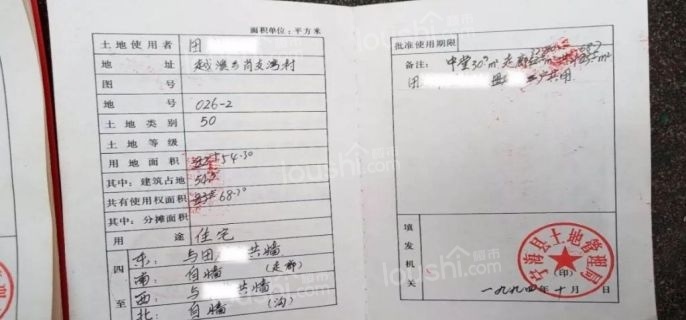 面积单位：平方米
土地使用者 田
地 址 越溪乡肖支湾村
图 号
地 号 026-2
土地类别 50
土地等级
用地面积 54.30
其中：建筑占地
共有使用权面积 68.70
其中：分摊面积
用 途 住宅
四至
东： 与田 共墙
南： 自墙 （走廊）
西： 与 共墙
北： 自墙 （沟）
批准使用期限
备注： 中堂30.0㎡ 走廊
田 户共用
填发机关
宁海县土地管理局
（印）
一九九四年十月 日
loushi.com
楼市